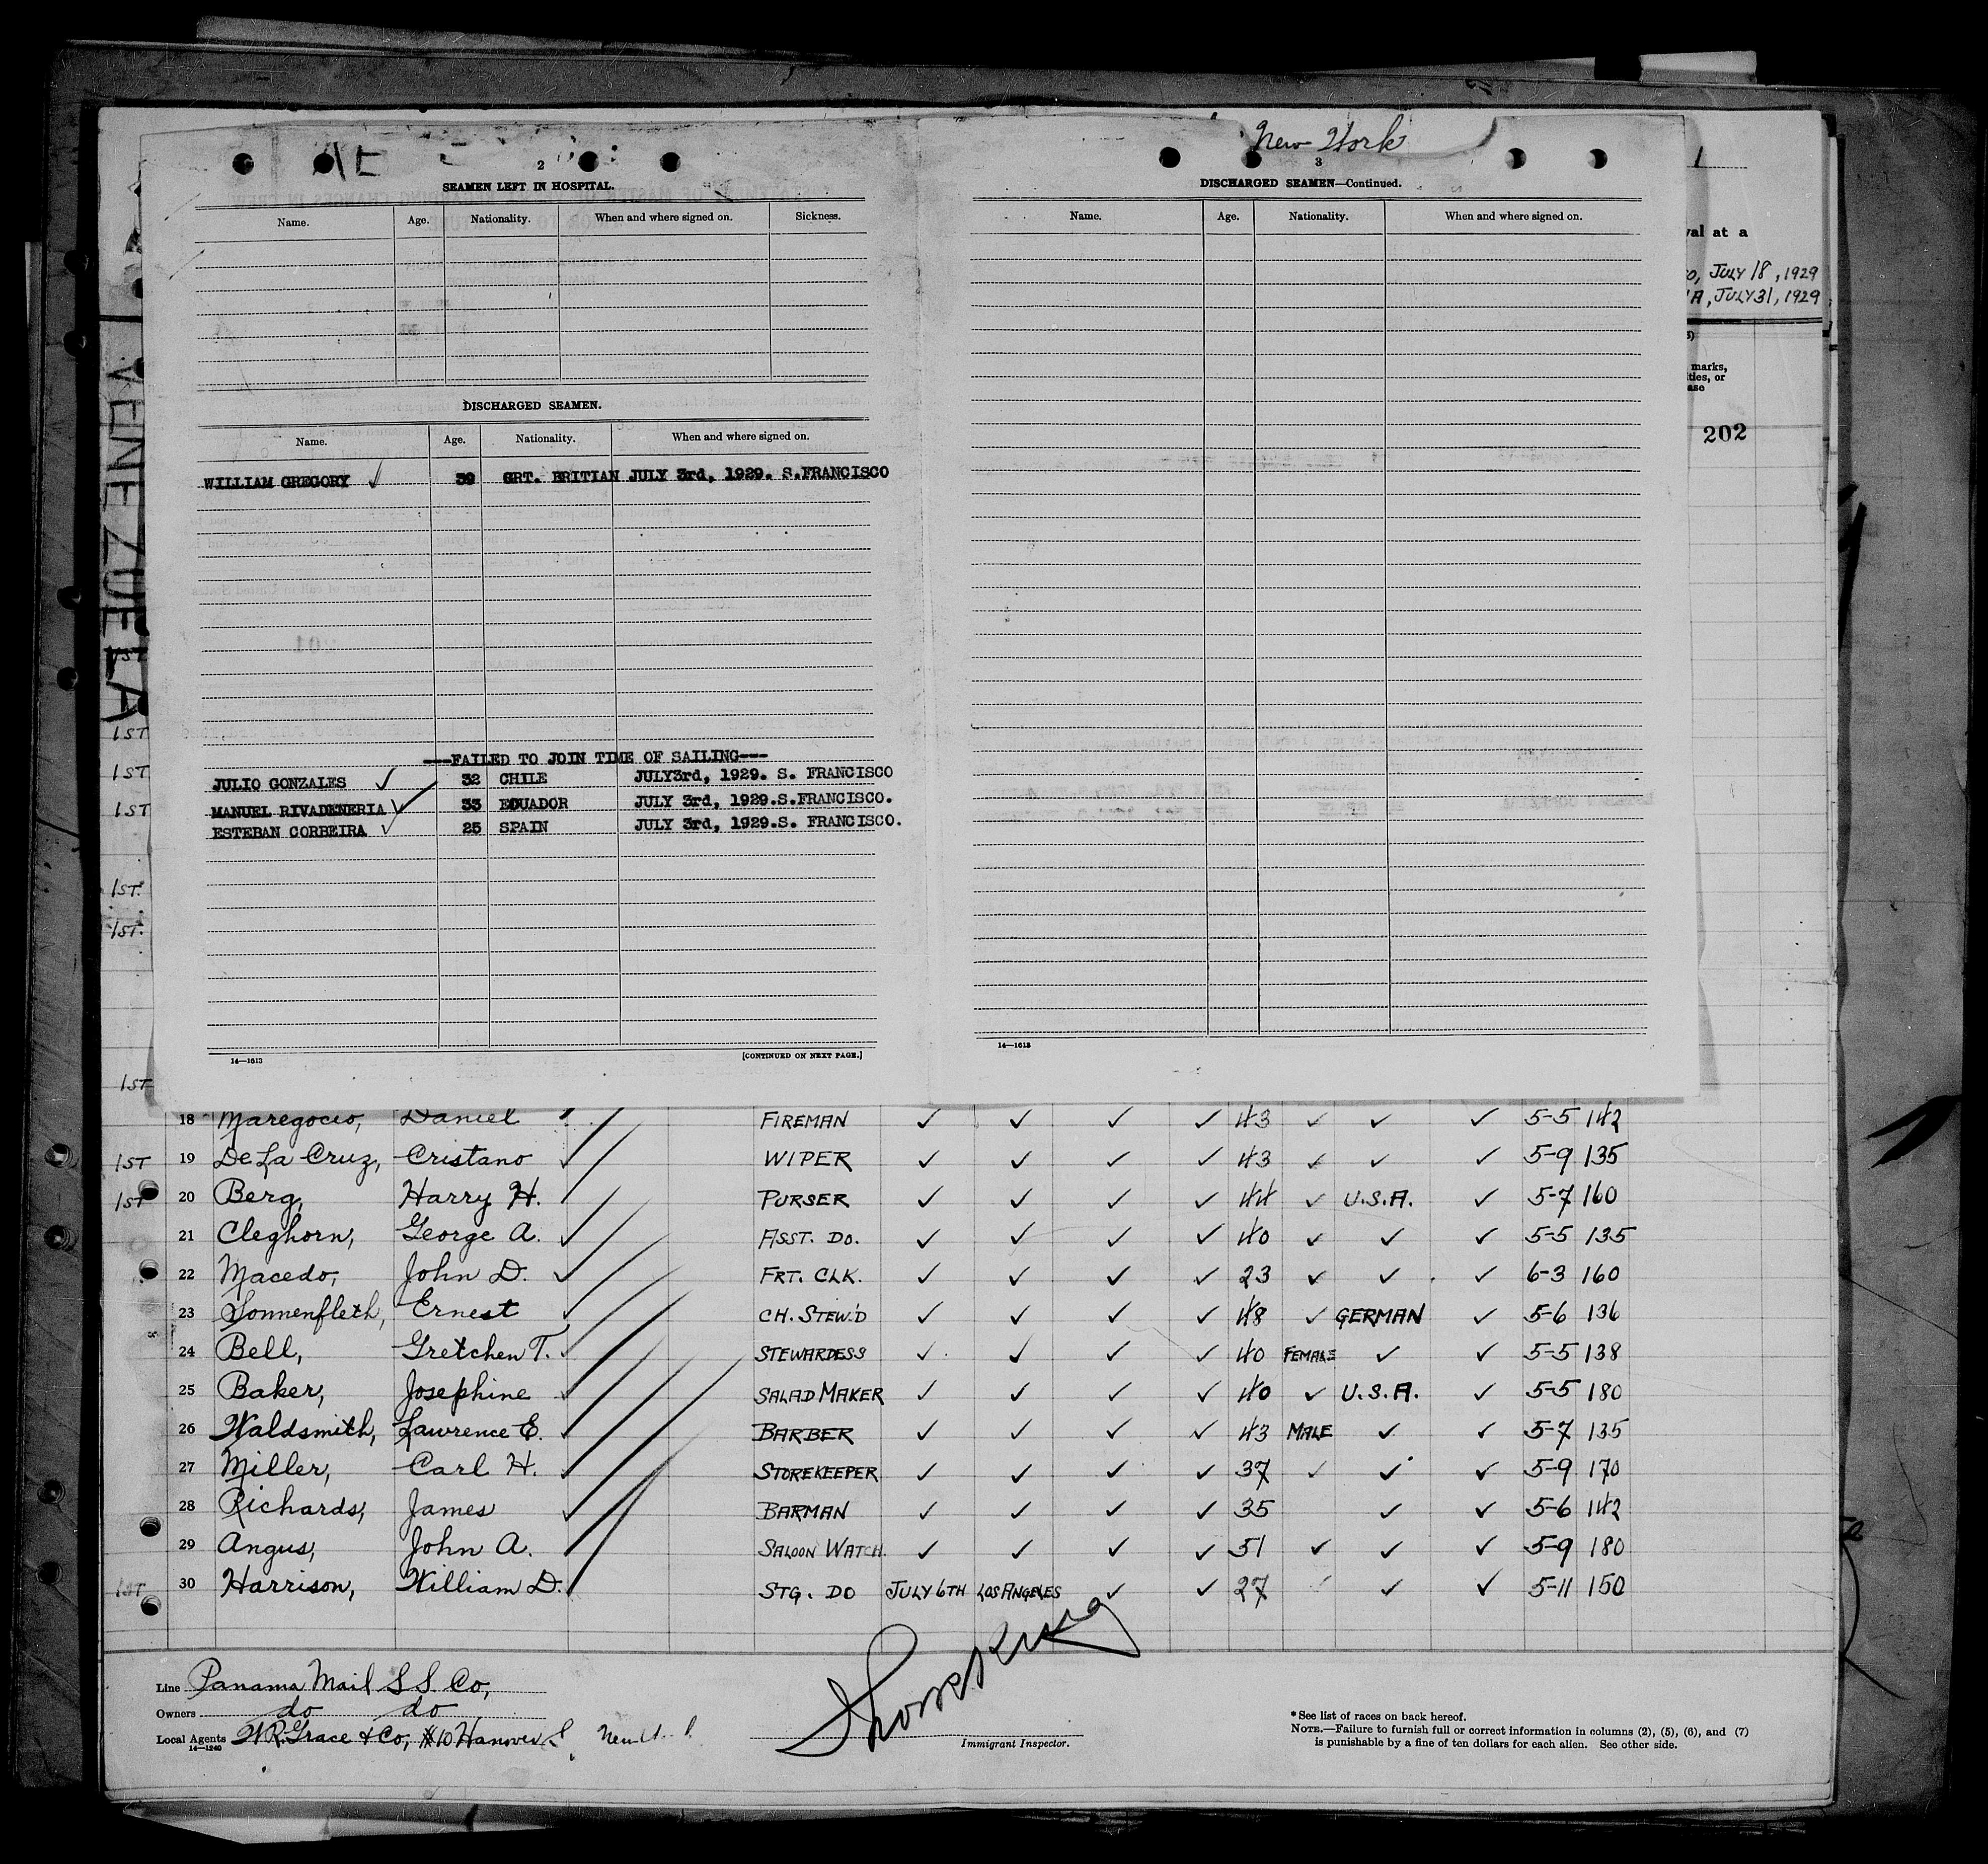 New York
2
SEAMEN LEFT IN HOSPITAL.
Name. Age. Nationality. When and where signed on. Sickness.
DISCHARGED SEAMEN.
Name. Age. Nationality. When and where signed on.
WILLIAM GREGORY ✓ 39 GRT. BRITIAN JULY 3rd, 1929. S.FRANCISCO
---FAILED TO JOIN TIME OF SAILING---
JULIO GONZALES ✓ 32 CHILE JULY3rd, 1929. S. FRANCISCO
MANUEL RIVADENERIA ✓ 33 ECUADOR JULY 3rd, 1929.S.FRANCISCO.
ESTEBAN CORBEIRA ✓ 25 SPAIN JULY 3rd, 1929.S. FRANCISCO.
14—1613 [CONTINUED ON NEXT PAGE.]
3
DISCHARGED SEAMEN—Continued.
Name. Age. Nationality. When and where signed on.
14—1613
1
val at a
JULY 18, 1929
JULY 31, 1929
marks,
ities, or
ase
202
VENEZUELA
1ST
1ST
1ST
1ST.
1ST.
1ST
18 Maregocio, Daniel FIREMAN ✓ ✓ ✓ ✓ 43 ✓ ✓ ✓ 5-5 142
1ST 19 De La Cruz, Cristano ✓ WIPER ✓ ✓ ✓ ✓ 43 ✓ ✓ ✓ 5-9 135
1ST 20 Berg, Harry H. PURSER ✓ ✓ ✓ ✓ 44 ✓ U.S.A. ✓ 5-7 160
21 Cleghorn, George A. ✓ ASST. DO. ✓ ✓ ✓ ✓ 40 ✓ ✓ ✓ 5-5 135
22 Macedo, John D. ✓ FRT. CLK. ✓ ✓ ✓ ✓ 23 ✓ ✓ ✓ 6-3 160
23 Sonnenfleth, Ernest ✓ CH. STEW'D ✓ ✓ ✓ ✓ 48 ✓ GERMAN ✓ 5-6 136
24 Bell, Gretchen T. ✓ STEWARDESS ✓ ✓ ✓ ✓ 40 FEMALE ✓ ✓ 5-5 138
25 Baker, Josephine ✓ SALAD MAKER ✓ ✓ ✓ ✓ 40 ✓ U.S.A. ✓ 5-5 180
26 Waldsmith, Lawrence E. ✓ BARBER ✓ ✓ ✓ ✓ 43 MALE ✓ ✓ 5-7 135
27 Miller, Carl H. ✓ STOREKEEPER ✓ ✓ ✓ ✓ 37 ✓ ✓ ✓ 5-9 170
28 Richards, James ✓ BARMAN ✓ ✓ ✓ ✓ 35 ✓ ✓ 5-6 142
29 Angus, John A. ✓ SALOON WATCH. ✓ ✓ ✓ ✓ 51 ✓ ✓ ✓ 5-9 180
1ST 30 Harrison, William D. STG. DO JULY 6TH LOS ANGELES ✓ ✓ 27 ✓ ✓ ✓ 5-11 150
Line Panama Mail S S Co,
Owners do do
Local Agents W.R. Grace & Co, #10 Hanover
14—1240
Immigrant Inspector.
* See list of races on back hereof.
NOTE.—Failure to furnish full or correct information in columns (2), (5), (6), and (7)
is punishable by a fine of ten dollars for each alien. See other side.